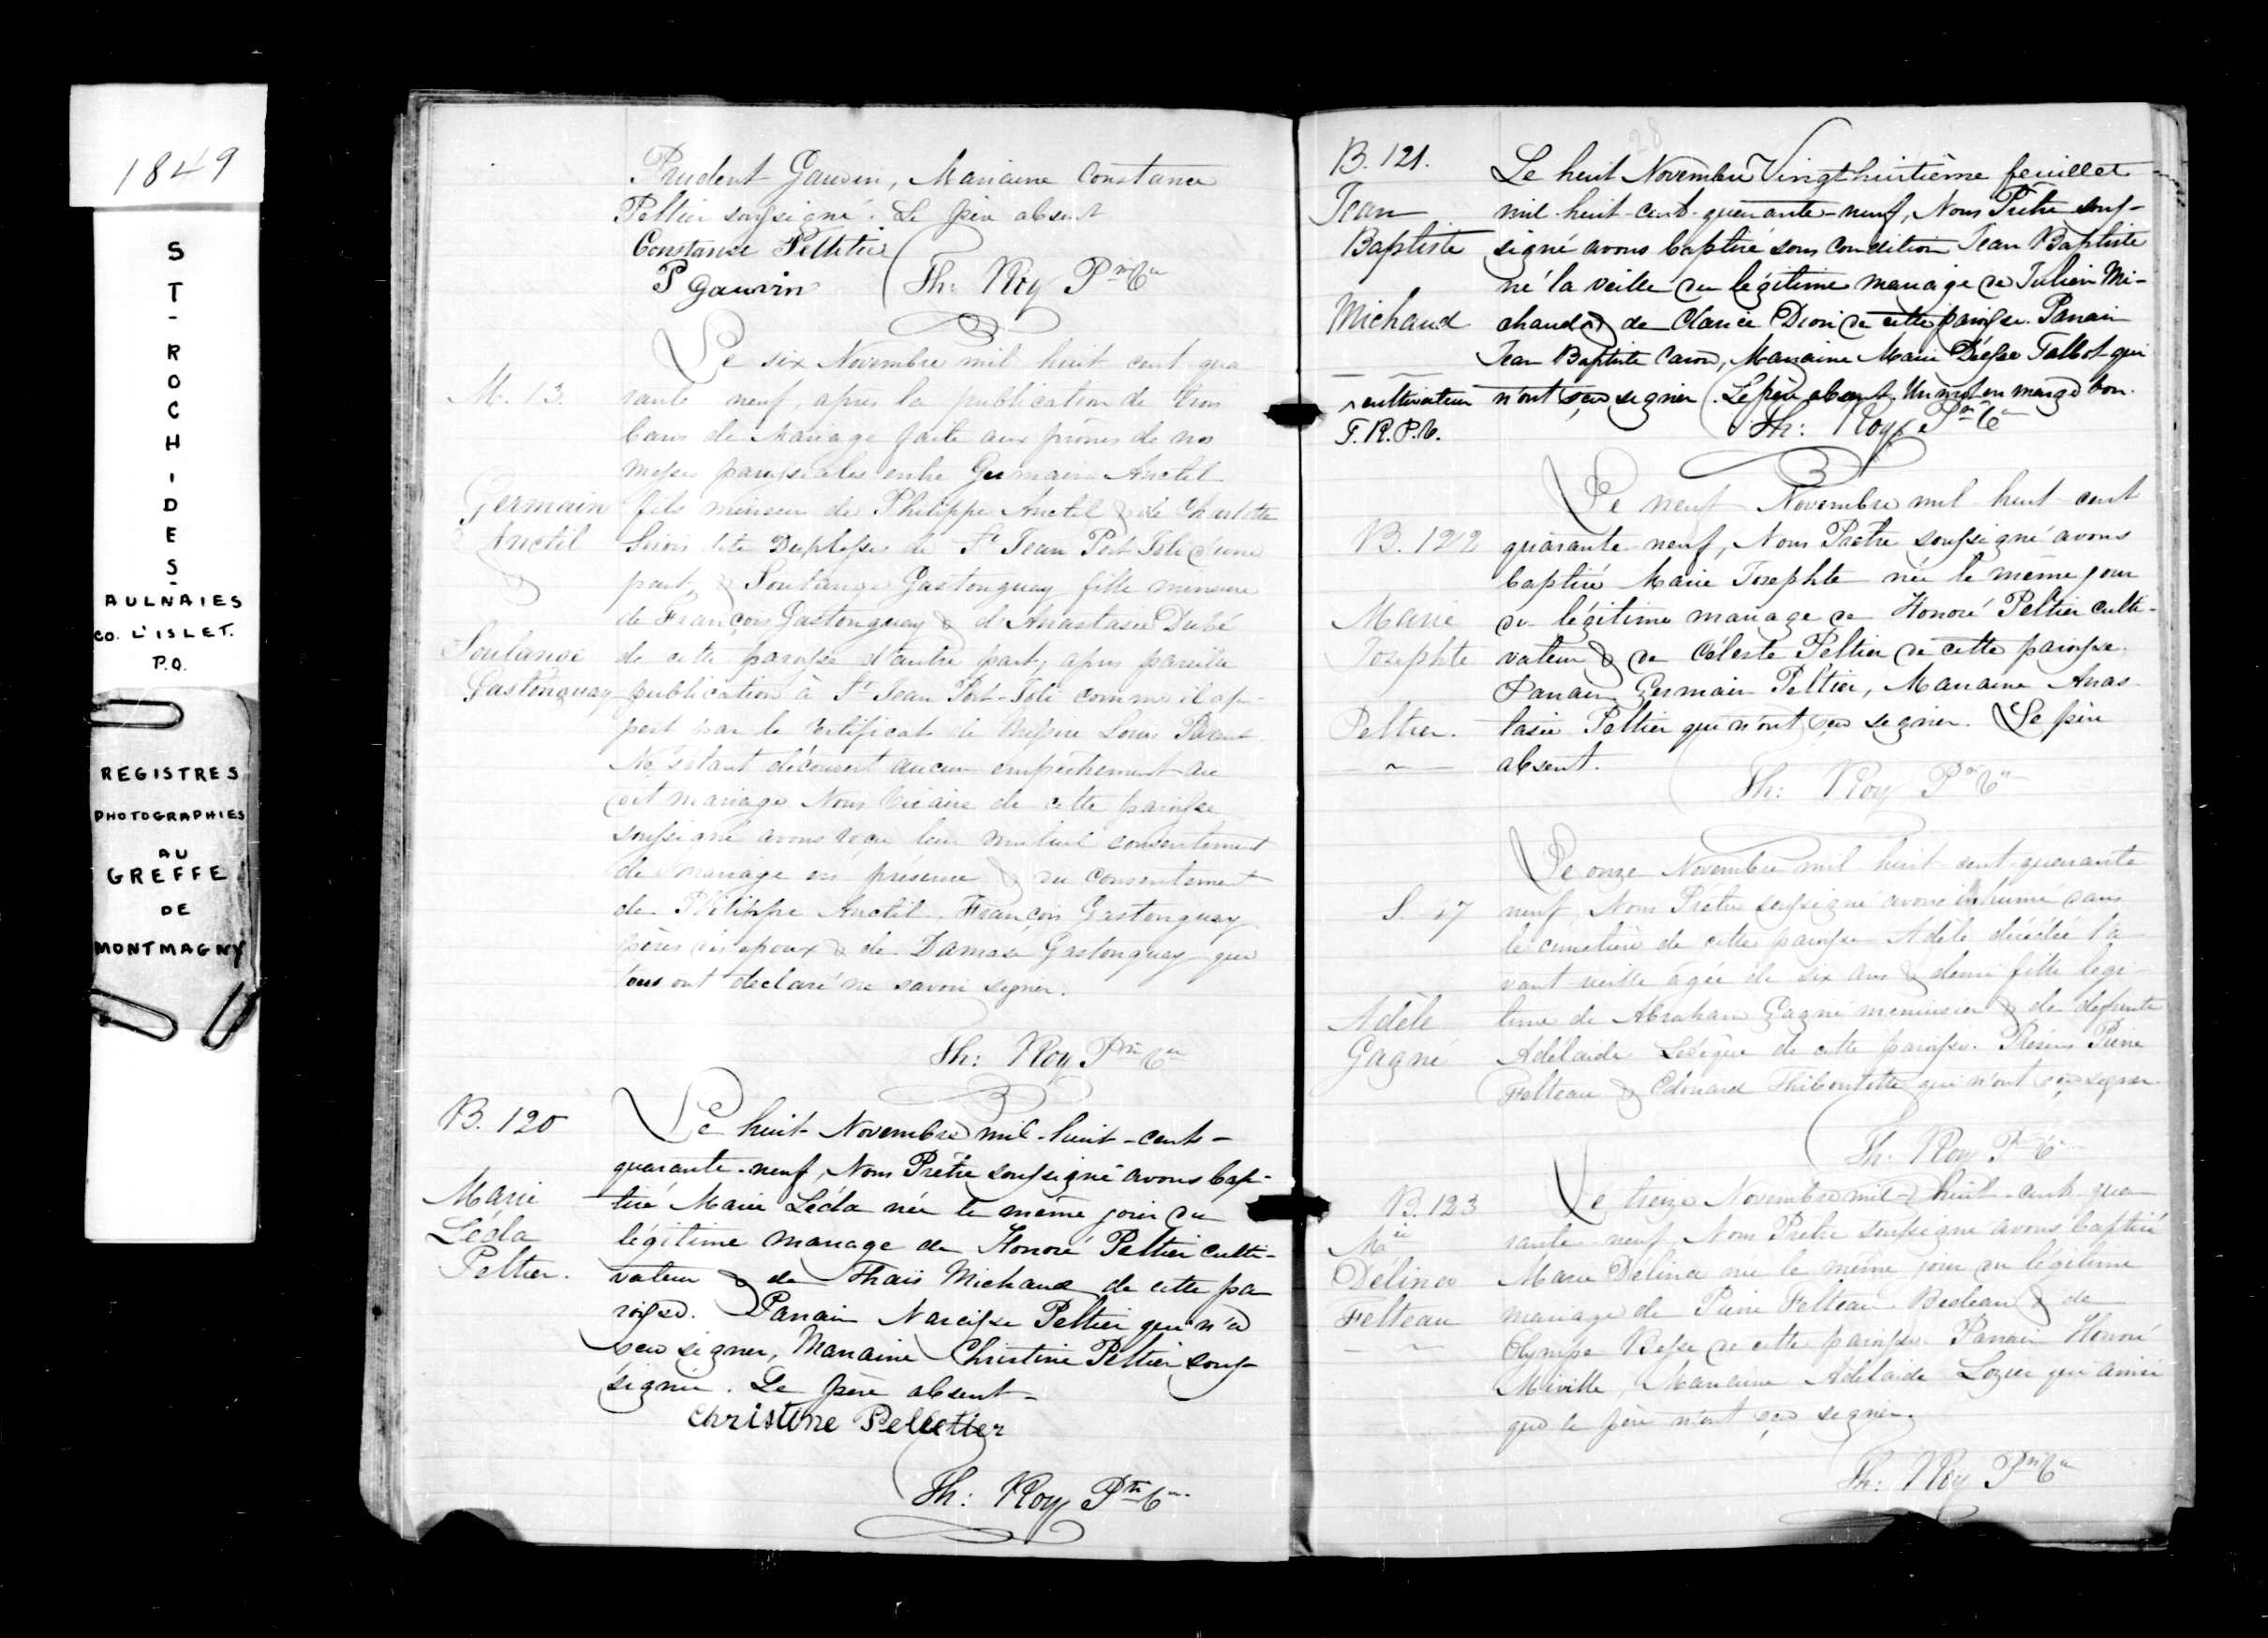 1849
ST-ROCH-DES-
AULNAIES
CO. L'ISLET.
P.Q.
REGISTRES
PHOTOGRAPHIES
AU
GREFFE
DE
MONTMAGNY
Prudent Gauvin, Maraine Constance
Peltier soussigné. Le père absent
Constance Pelletier
P Gauvin
Th: Roy Ptre
M. 13.
Germain
Anctil
&
Soulange
Gastonguay
Le six Novembre mil huit cent qua
rante neuf, après la publication de trois
bans de Mariage faite aux prônes de nos
messes paroissiales entre Germain Anctil
fils mineur de Philippe Anctil & de Charlotte
dite Duplessis de St Jean Port Joli d'une
part, & Soulange Gastonguay fille mineure
de François Gastonguay & d'Anastasie Dubé
de cette paroisse d'autre part, après pareille
publication à St Jean Port-Joli comme il ap-
pert par le Certificat de Messire Louis Parant
Ne s'étant découvert aucun empêchement au
dit mariage Nous Vicaire de cette paroisse
soussigné avons recu leur mutuel consentement
de mariage en présence & du consentement
de Philippe Anctil, François Gastonguay
pères des epoux & de Damase Gastonguay qui
tous ont declaré ne savoir signer.
Th: Roy Ptre
B. 120
Marie
Léda
Peltier.
Le huit Novembre mil-huit-cent-
quarante-neuf, Nous Prêtre soussigné avons bap-
tisé Marie Léda née le même jour du
légitime mariage de Honoré Peltier culti-
vateur & de Thaïs Michaud de cette pa
roisse. Parrain Narcisse Peltier qui n'a
sçu signer, Maraine Christine Peltier sous-
signée. Le père absent-
Christine Pelletier
Th: Roy Ptre
28
B. 121.
Jean
Baptiste
Michaud
^ cultivateur
T.R.P.V.
Le huit Novembre Vingt huitième feuillet
mil-huit-cent-quarante-neuf, Nous Prêtre sous-
signé avons baptisé sous condition Jean Baptiste
né la veille du légitime mariage de Julien Mi-
chaud ^ & de Clarice Dion de cette paroisse. Parrain
Jean Baptiste Caron, Maraine Marie Talbot qui
n'ont sçu signer. Le père absent. Un mot en marge bon.
Th: Roy Ptre
B. 122
Marie
Josephte
Peltier.
Le neuf Novembre mil huit cent
quarante neuf, Nous Prêtre soussigné avons
baptisé Marie Josephte née le même jour
du légitime mariage de Honoré Peltier culti-
vateur & de Céleste Peltier de cette paroisse.
Parrain Germain Peltier, Maraine Anas-
tasie Peltier qui n'ont sçu signer. Le père
absent.
Th: Roy Ptre
S. 47
Adèle
Gagné
Le onze Novembre mil huit cent quarante
neuf, Nous Prêtre soussigné avons inhumé dans
le cimetière de cette paroisse Adèle décédée l'a
vant-veille agée de six ans & demi fille légi-
time de Abraham Gagné menuisier & de defunte
Adélaide de cette paroisse. Présens Pierre
Felteau & Edouard Thiboutotte qui n'ont sçu signer
Th: Roy Ptre
B. 123
Mie
Délina
Felteau
Le treize Novembre mil-huit-cent-qua
rante-neuf Nous Prêtre soussigné avons baptisé
Marie Délina née le même jour du légitime
mariage de Pierre Felteau Bedeau & de
Olympe de cette paroisse. Parrain Honoré
Miville, Maraine Adélaide Lozier qui ainsi
que le père n'ont sçu signer.
Th: Roy Ptre